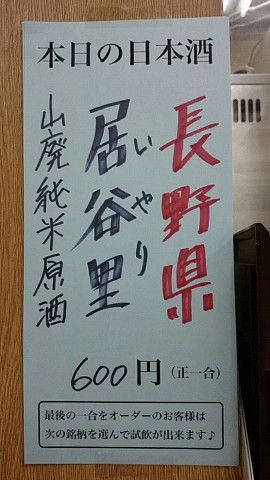 本日の日本酒
長野県
いやり
居谷里
山廃純米原酒
600円(正一合)
最後の一合をオーダーのお客様は
次の銘柄を選んで試飲が出来ます♪